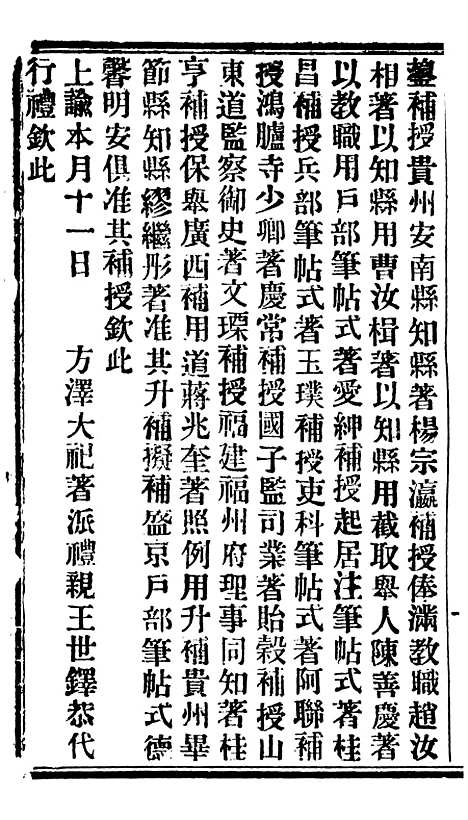 補授貴州安南縣知縣著楊宗瀛補授俸滿教職趙汝
相著以知縣用曹汝楫著以知縣用截取舉人陳善慶著
以教職用戶部筆帖式著愛紳補授起居注筆帖式著桂
昌補授兵部筆帖式著玉璞補授吏科筆帖式著阿聯補
授鴻臚寺少卿著慶常補授國子監司業著貽穀補授山
東道監察御史著文瑮補授福建福州府理事同知著桂
亨補授保舉廣西補用道蔣兆奎著照例用升補貴州畢
節縣知縣繆繼彤著准其升補擬補盛京戶部筆帖式德
馨明安俱准其補授欽此
上諭本月十一日　方澤大祀著派禮親王世鐸恭代
行禮欽此